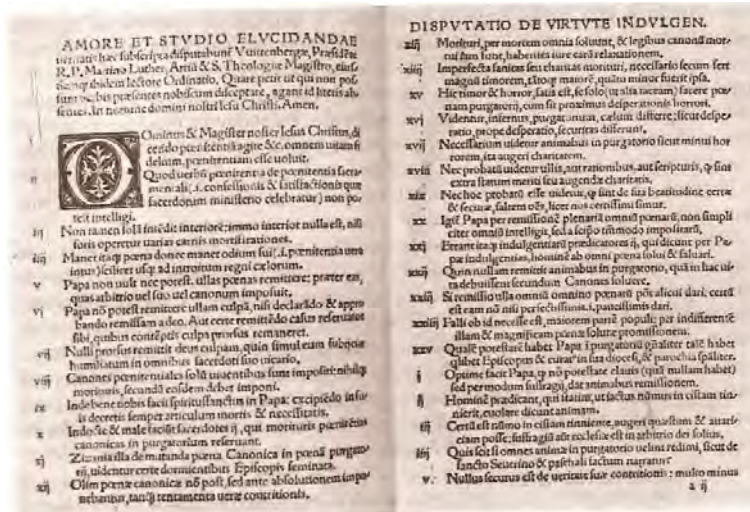 AMORE ET STVDIO ELVCIDANDAE
ueritatis hæc subscripta disputabunt Vuittenbergæ, Præsidẽte
R. P. Martino Luther, Artiũ & S. Theologiæ Magistro, eiusdemq; ibidem lectore Ordinatio. Quare petit ut qui non possunt
uerbis præsentes nobiscum disceptare, agant id literis absentes.
In nomine domini nostri Iesu Christi. Amen.
Ominus & Magister noster Iesus Christus, di
cendo pœnitentiã agite &c. omnem uitam fi
delium, pœnitentiam esse uoluit.
ij Quod uerbũ pœnitentia de pœnitentia sacra
mentali (.i. confessionis & satisfactionis quæ
sacerdotum ministerio celebratur) non po
test intelligi.
iij Non tamen solã intẽdit interiorẽ: immo interior nulla est, nisi
foris operetur uarias carnis mortificationes.
iiij Manet itaq; pœna donec manet odium sui (.i. pœnitentia uera
intus) scilicet usq; ad introitum regni cælorum.
v Papa non uult nec potest, ullas pœnas remittere: præter eas,
quas arbitrio uel suo uel canonum imposuit.
vj Papa nõ potest remittere ullam culpã, nisi declarãdo & appro
bando remissam a deo. Aut certe remittẽdo casus reseruatos
sibi, quibus contẽptis culpa prorsus remaneret.
vij Nulli prorsus remittit deus culpam, quin simul eum subijciat
humiliatum in omnibus sacerdoti suo uicario.
viij Canones pœnitentiales solũ uiuentibus sunt impositi: nihilq;
morituris, secundũ eosdem debet imponi.
ix Inde bene nobis facit spiritussanctus in Papa: excipiẽdo in su
is decretis semper articulum mortis & necessitatis.
x Indocte & male faciũt sacerdotes ij, qui morituris pœnitẽtias
canonicas in purgatorium reseruant.
xj Zizania illa de mutanda pœna Canonica in pœnã purgato
rij, uidentur certe dormientibus Episcopis seminata.
xij Olim pœnæ canonicæ nõ post, sed ante absolutionem impo
nebantur, tanq̃ tentamenta ueræ contritionis.
DISPVTATIO DE VIRTVTE INDVLGEN.
xiij Morituri, per mortem omnia soluunt, & legibus canonũ mor
tui iam sunt, habentes iure earũ relaxationem.
xiiij Imperfecta sanitas seu charitas morituri, necessario secum fert
magnũ timorem, tãtoq; maiorẽ, quãto minor fuerit ipsa.
xv Hic timor & horror, satis est, se solo (ut alia taceam) facere pœ
nam purgatorij, cum sit proximus desperationis horrori.
xvj Videntur, infernus, purgatorium, cælum differre: sicut despe
ratio, prope desperatio, securitas differunt.
xvij Necessarium uidetur animabus in purgatorio sicut minui hor
rorem, ita augeri charitatem.
xviij Nec probatũ uidetur ullis, aut rationibus, aut scripturis, q̃ sint
extra statum meriti seu augendæ charitatis.
xix Nec hoc probatũ esse uidetur, q̃ sint de sua beatitudine certæ
& securæ, saltem oẽs, licet nos certissimi simus.
xx Igit̃ Papa per remissionẽ plenariã omniũ pœnarũ, non simpli
citer omniũ intelligit, sed a seipso tm̃modo impositarũ.
xxj Errant itaq; indulgentiarũ prædicatores ij, qui dicunt per Pa
pæ indulgentias, hominẽ ab omni pœna solui & saluari.
xxij Quin nullam remittit animabus in purgatorio, quã in hac ui
ta debuissent secundum Canones soluere.
xxiij Si remissio ulla omniũ omnino pœnarũ põt alicui dari, certũ
est eam nõ nisi perfectissimis .i. paucissimis dari.
xxiiij Falli ob id necesse est, maiorem partẽ populi: per indifferentẽ
illam & magnificam pœnæ solutæ promissionem.
xxv Qualẽ potestatẽ habet Papa ĩ purgatoriũ gñaliter talẽ habet
quilibet Episcopus & curat9 in sua diocesi, & parochia spãliter.
j Optime facit Papa, q̃ nõ potestate clauis (quã nullam habet)
sed per modum suffragij, dat animabus remissionem.
ij Hominẽ prædicant, qui statim, ut iactus nũmus in cistam tin
nierit, euolare dicunt animam.
iij Certũ est nũmo in cistam tinniente, augeri quæstum & auari
ciam posse: suffragiũ aũt ecclesiæ est in arbitrio dei solius.
iiij Quis scit si omnes animæ in purgatorio uelint redimi, sicut de
sancto Seuerino & paschali factum narratur.
v. Nullus securus est de ueritate suæ contritionis: multo minus
a ij